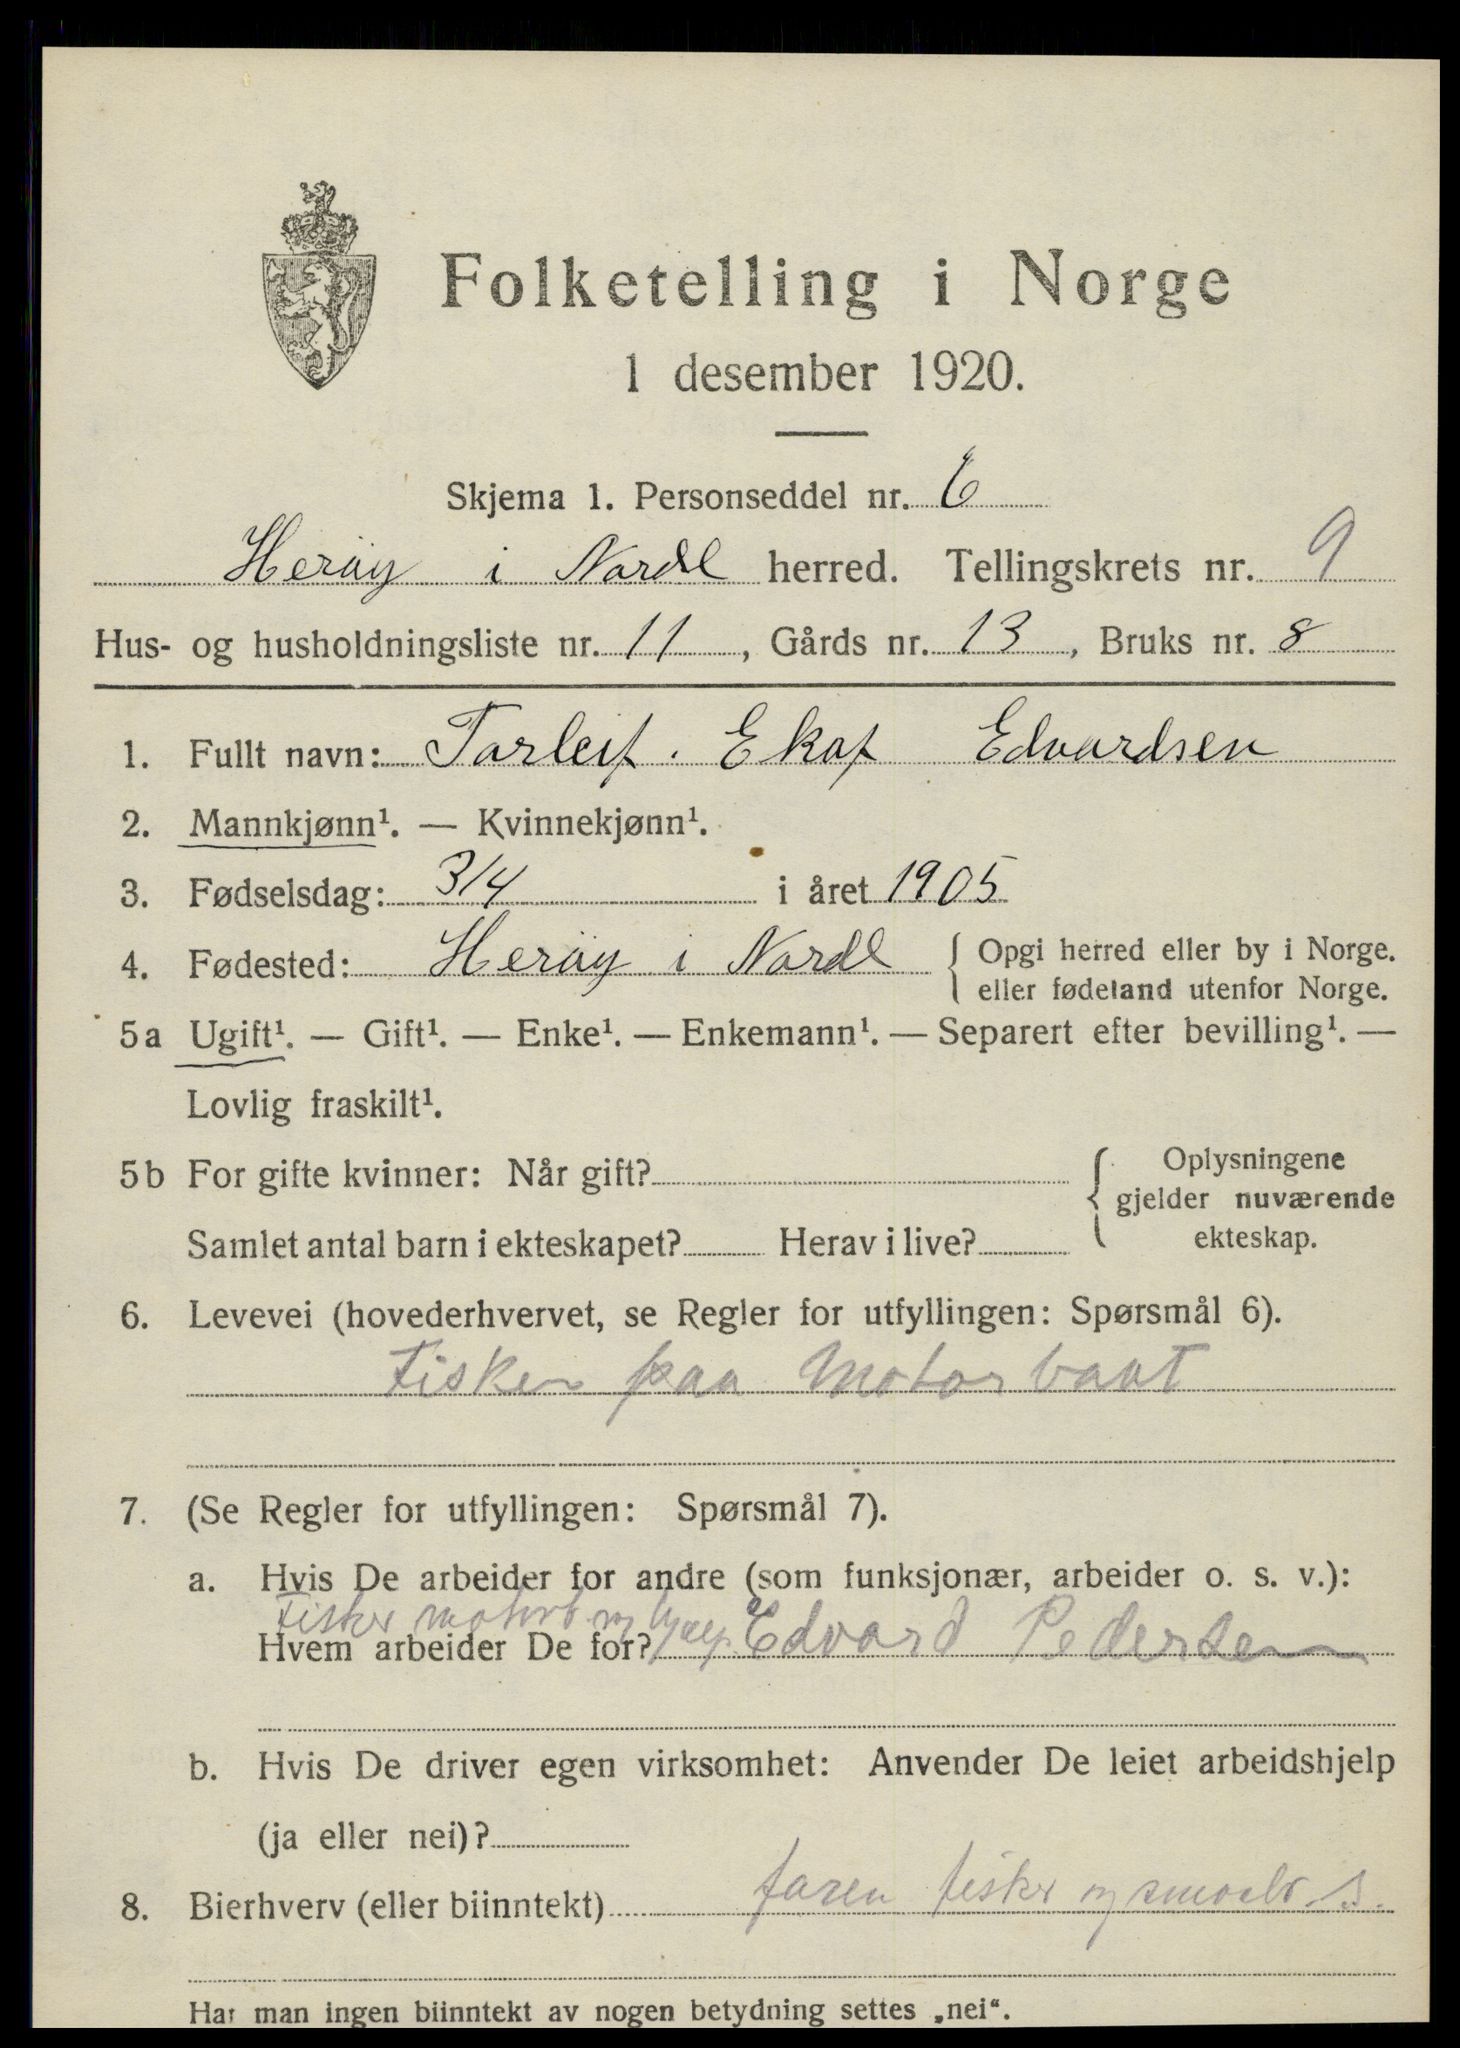 Folketelling i Norge
1 desember 1920.
Skjema 1. Personseddel nr. 6
Herøy i Nordl herred. Tellingskrets nr. 9
Hus- og husholdningsliste nr. 11, Gårds nr. 13, Bruks nr. 8
1. Fullt navn: Torleif. Ekaf Edvardsen
2. Mannkjønn¹. — Kvinnekjønn¹.
3. Fødselsdag: 3/4 i året 1905
4. Fødested: Herøy i Nordl { Opgi herred eller by i Norge.
eller fødeland utenfor Norge.
5a Ugift¹. — Gift¹. — Enke¹. — Enkemann¹. — Separert efter bevilling¹. —
Lovlig fraskilt¹.
5b For gifte kvinner: Når gift?
Samlet antal barn i ekteskapet? Herav i live?
{ Oplysningene
gjelder nuværende
ekteskap.
6. Levevei (hovederhvervet, se Regler for utfyllingen: Spørsmål 6).
Fisker paa Motorbaat
7. (Se Regler for utfyllingen: Spørsmål 7).
a. Hvis De arbeider for andre (som funksjonær, arbeider o. s. v.):
Fisker
Hvem arbeider De for? Edvard Pedersen
b. Hvis De driver egen virksomhet: Anvender De leiet arbeidshjelp
(ja eller nei)?
8. Bierhverv (eller biinntekt) faren fisker og smaabr. s.
Har man ingen biinntekt av nogen betydning settes „nei“.